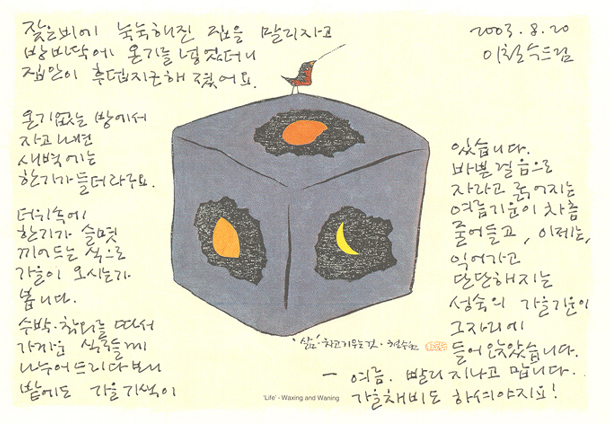 잦은 비에 눅눅해진 집을 말리자고
방바닥에 온기를 넣었더니
집안이 후텁지근해 졌어요.
2003. 8. 20
이철수드림
온기없는 방에서
자고나면
새벽에는
한기가 들더라구요.
더위속에
한기가 슬몃
끼어드는 식으로
가을이 오시는가
봅니다.
수박·참외를 따서
가까운 식구들께
나누어드리다 보니
밭에도 가을기색이
있습니다.
바쁜 걸음으로
자라고 굵어지는
여름기운이 차츰
줄어들고, 이제는,
익어가고
단단해지는
성숙의 가을기운이
그자리에
들어 앉았습니다.
— 여름. 빨리 지나고 맙니다..
가을채비도 하셔야지요!
'삶' 차고기우는것 · 철수
'Life' - Waxing and Waning